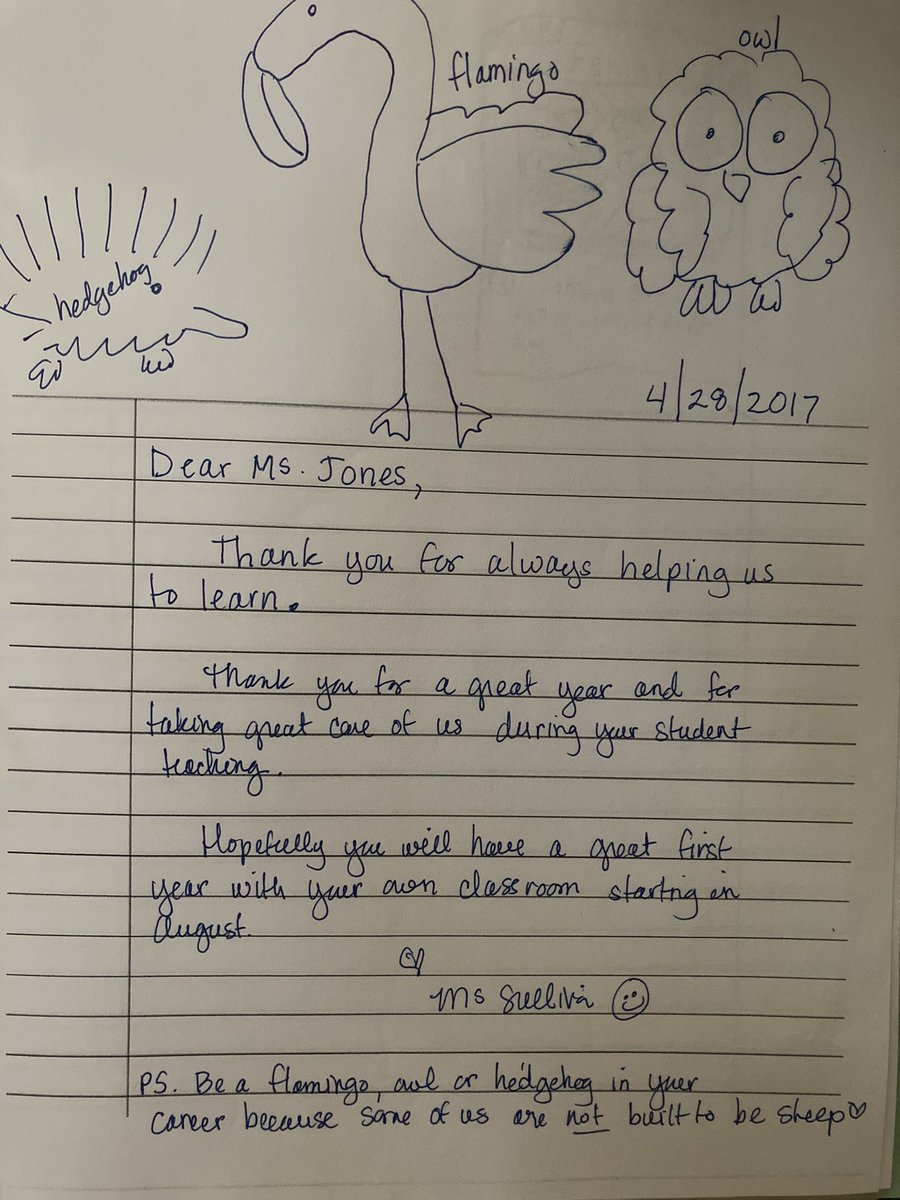 owl
flamingo
hedgehog
4/28/2017
Dear Ms. Jones,
Thank you for always helping us
to learn.
Thank you for a great year and for
taking great care of us during your student
teaching.
Hopefully you will have a great first
year with your own classroom starting in
August.
Ms Sullivan
PS. Be a flamingo, owl or hedgehog in your
career because some of us are not built to be sheep